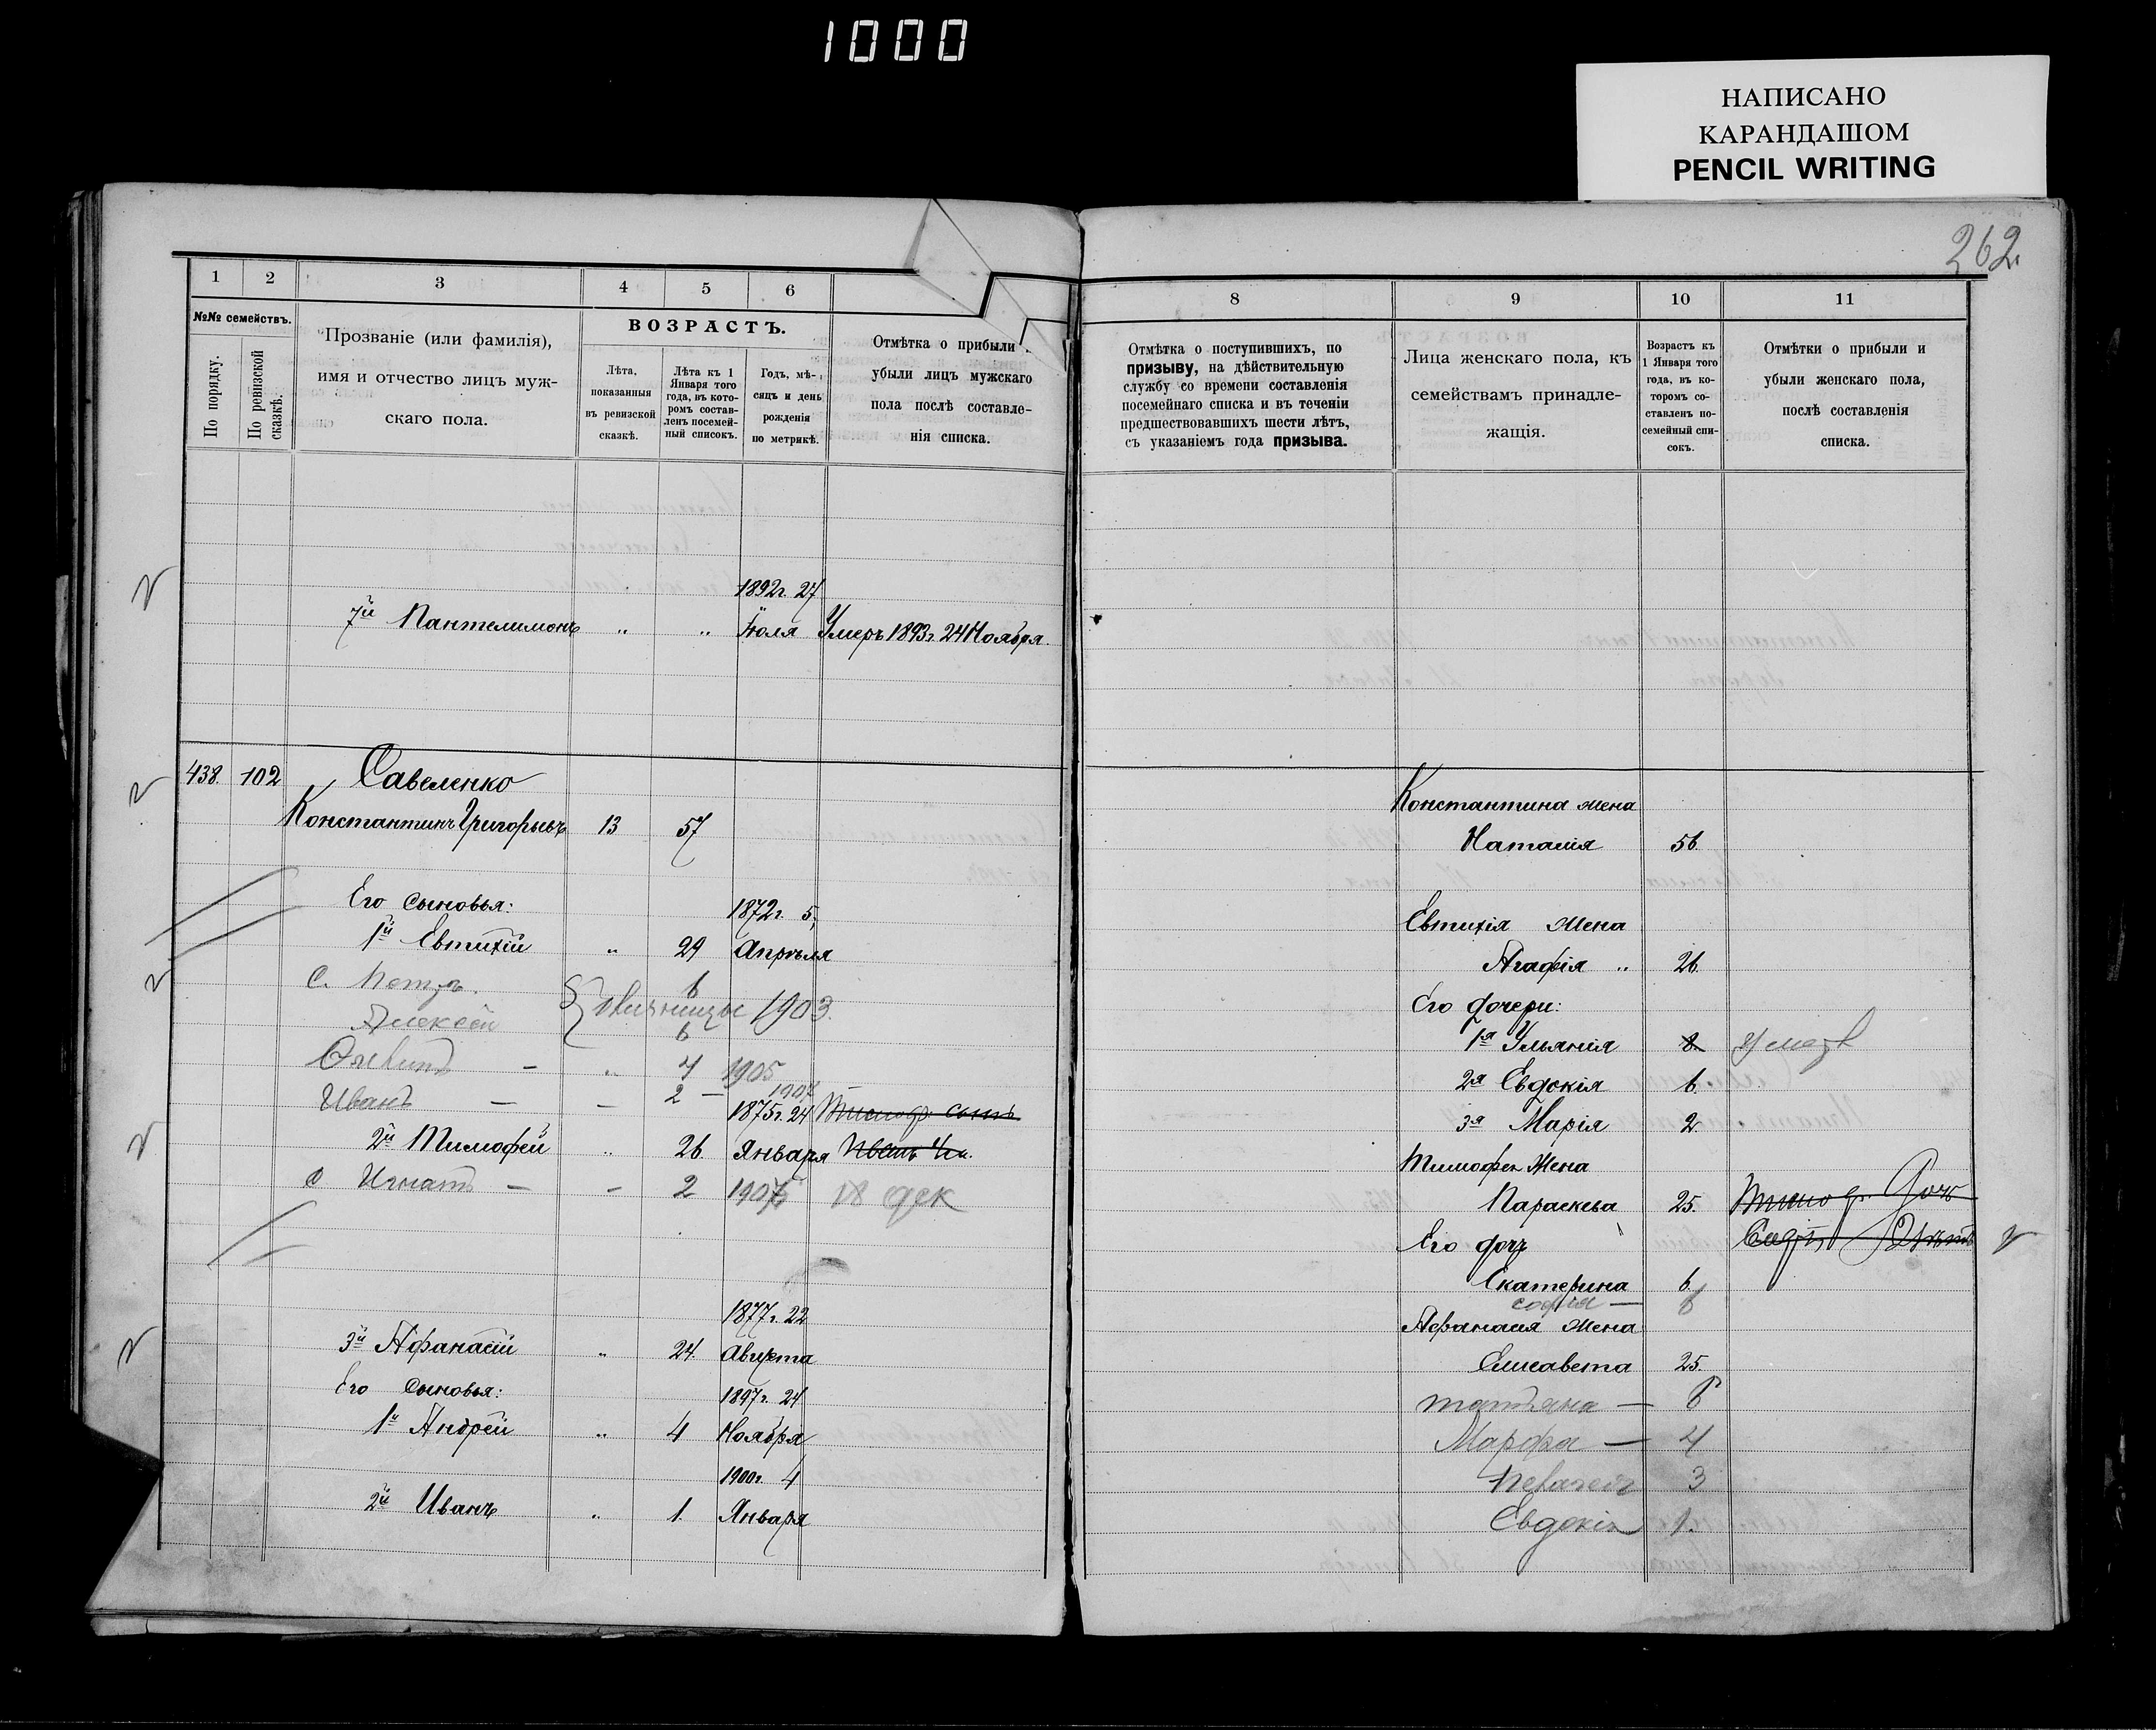 1000
НАПИСАНО
КАРАНДАШОМ
PENCIL WRITING
262
1 2 3 4 5 6
№№ семействъ.
По порядку.
По ревизской сказкѣ.
Прозваніе (или фамилія),
имя и отчество лицъ муж-
скаго пола.
ВОЗРАСТЪ.
Лѣта,
показанныя
въ ревизской
сказкѣ.
Лѣта къ 1
Января того
года, въ кото-
ромъ состав-
ленъ посемей-
ный списокъ.
Годъ, мѣ-
сяцъ и день
рожденія
по метрикѣ.
Отмѣтка о прибыли
убыли лицъ мужскаго
пола послѣ составле-
нія списка.
1892г. 27
7й Пантелимонъ " " Іюля Умеръ 1893г. 24 Ноября.
438. 102 Савеленко
Константинъ Григорьевъ 13 57
Его сыновья: 1872г. 5,
1й Евтихій " 29 Апрѣля
с. Петръ. 6
Алексѣй близницы 1903.
6
— " 4 1905
Иванъ — — 2 — 1907
1875г. 24
2й Тимофей " 26 Января Иванъ
с Игнатъ — — 2 1907 18 дек
1877г. 22
3й Афанасій " 24. Августа
Его сыновья: 1897г. 24
1й Андрей " 4 Ноября
1900г. 4
2й Иванъ " 1. Января
8 9 10 11
Отмѣтка о поступившихъ, по
призыву, на дѣйствительную
службу со времени составленія
посемейнаго списка и въ теченіи
предшествовавшихъ шести лѣтъ,
съ указаніемъ года призыва.
Лица женскаго пола, къ
семействамъ принадле-
жащія.
Возрастъ къ
1 Января того
года, въ ко-
торомъ со-
ставленъ по-
семейный спи-
сокъ.
Отмѣтки о прибыли и
убыли женскаго пола,
послѣ составленія
списка.
Константина жена
Наталія 56.
Евтихія жена
Агафія " 26.
Его дочери:
1я Ульянія 8. умер
2я Евдокія 6.
3я Марія 2.
Тимофея жена
Параскева 25. дочь
Его дочь
Екатерина 6.
софія — 8
Афанасія жена
Елисавета 25.
татьяна — 8
Марфа — 4
3
Евдокія 1.